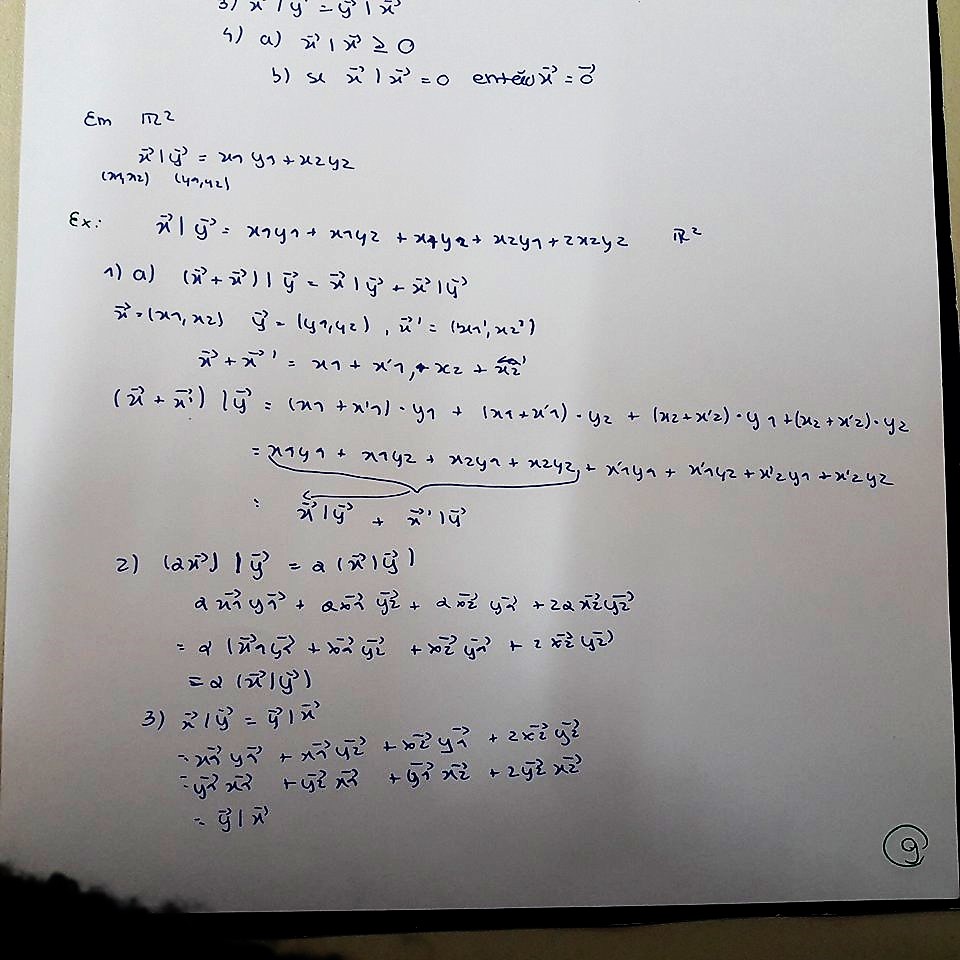 3) x⃗ | y⃗ = y⃗ | x⃗
4) a) x⃗ | x⃗ ≥ 0
b) se x⃗ | x⃗ = 0 então x⃗ = 0⃗
Em ℝ²
x⃗ | y⃗ = x1 y1 + x2 y2
(x1, x2) (y1, y2)
Ex: x⃗ | y⃗ = x1y1 + x1y2 + x2y1 + 2x2y2 ℝ²
1) a) (x⃗ + x⃗') | y⃗ = x⃗ | y⃗ + x⃗' | y⃗
x⃗ = (x1, x2) y⃗ = (y1, y2), x⃗' = (x1', x2')
x⃗ + x⃗' = x1 + x'1, x2 + x2'
(x⃗ + x⃗') | y⃗ = (x1 + x'1) · y1 + (x1 + x'1) · y2 + (x2 + x'2) · y1 + (x2 + x'2) · y2
= x1y1 + x1y2 + x2y1 + x2y2 + x'1y1 + x'1y2 + x'2y1 + x'2y2
= x⃗ | y⃗ + x⃗' | y⃗
2) (αx⃗) | y⃗ = α (x⃗ | y⃗)
αx⃗1 y⃗1 + αx⃗1 y⃗2 + αx⃗2 y⃗1 + 2αx⃗2 y⃗2
= α (x⃗1 y⃗1 + x⃗1 y⃗2 + x⃗2 y⃗1 + 2 x⃗2 y⃗2)
= α (x⃗ | y⃗)
3) x⃗ | y⃗ = y⃗ | x⃗
= x⃗1 y⃗1 + x⃗1 y⃗2 + x⃗2 y⃗1 + 2x⃗2 y⃗2
= y⃗1 x⃗1 + y⃗2 x⃗1 + y⃗1 x⃗2 + 2y⃗2 x⃗2
= y⃗ | x⃗
9